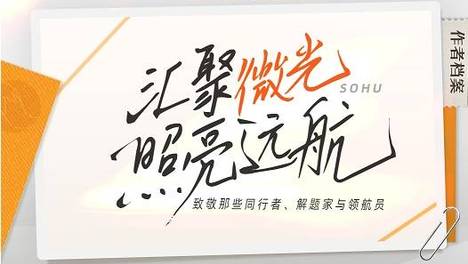 汇聚微光
SOHU
照亮远航
致敬那些同行者、解题家与领航员
作者档案